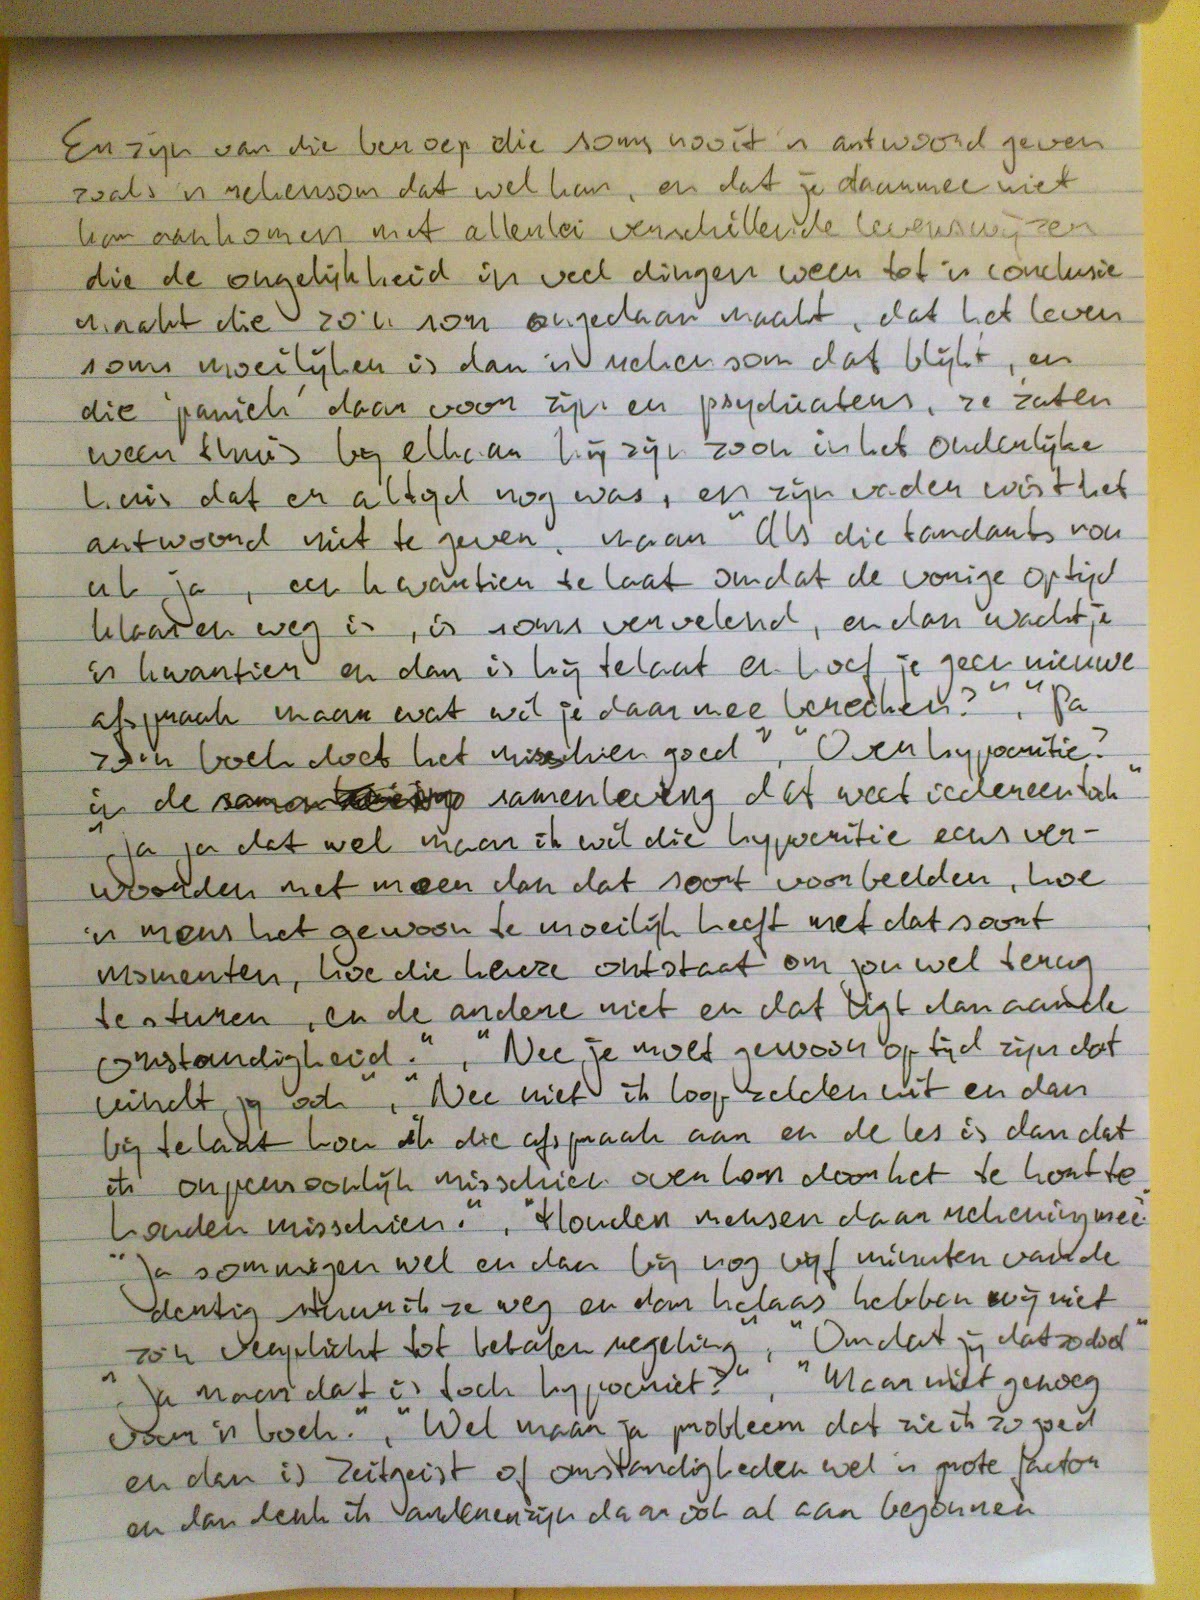 Er zijn van die beroep die soms nooit 'n antwoord geven
zoals 'n rekensom dat wel kan, en dat je daarmee niet
kan aankomen met allerlei verschillende levenswijzen
die de ongelijkheid in veel dingen weer tot 'n conclusie
maakt die zo'n som ongedaan maakt, dat het leven
soms moeilijker is dan 'n rekensom dat blijkt, en
die 'paniek' daar voor zijn er psychiaters, ze zaten
weer thuis bij elkaar hij zijn zoon in het ouderlijke
huis dat er altijd nog was, en zijn vader wist het
antwoord niet te geven, maar "Als die tandarts nou
uh ja, een kwartier te laat omdat de vorige op tijd
klaar en weg is, is soms vervelend, en dan wacht je
'n kwartier en dan is hij te laat en hoef je geen nieuwe
afspraak maar wat wil je daarmee bereiken?", "Pa
zo'n boek doet het misschien goed", "Over hypocritie?
in de samenleving dat weet iedereen toch"
"Ja ja dat wel maar ik wil die hypocritie eens ver-
woorden met meer dan dat soort voorbeelden, hoe
'n mens het gewoon te moeilijk heeft met dat soort
momenten, hoe die keuze ontstaat om jou wel terug
te sturen, en de andere niet en dat ligt dan aan de
omstandigheid.", "Nee je moet gewoon op tijd zijn dat
vindt jij ook", "Nee niet ik loop zelden uit en dan
bij te laat hou ik die afspraak aan en de les is dan dat
ik onpersoonlijk misschien over kom door het te kort te
houden misschien.", "Houden mensen daar rekening mee"
"Ja sommigen wel en dan bij nog vijf minuten van de
dertig stuur ik ze weg en dan helaas hebben wij niet
zo'n verplicht tot betalen regeling", "Omdat jij dat zo doet"
"Ja maar dat is toch hypocriet?", "Maar niet genoeg
voor 'n boek.", "Wel maar ja probleem dat zie ik zo goed
en dan is zeitgeist of omstandigheden wel 'n grote factor
en dan denk ik anderen zijn daar ook al aan begonnen